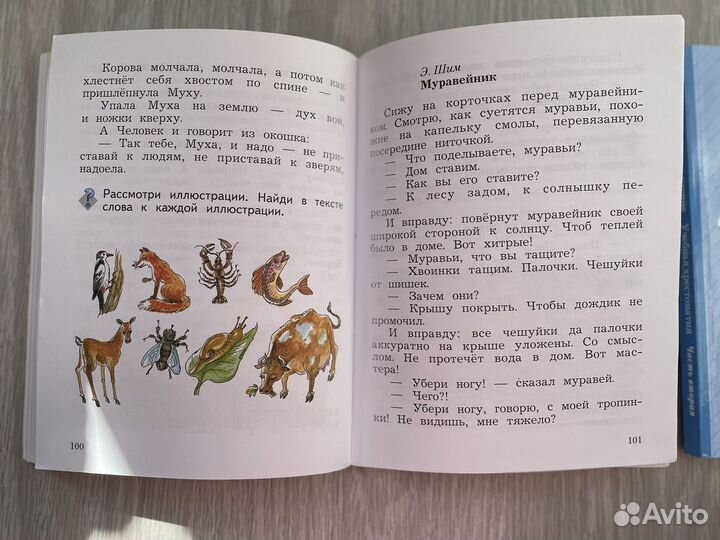 Корова молчала, молчала, а потом как
хлестнёт себя хвостом по спине — и
пришлёпнула Муху.
Упала Муха на землю — дух вон,
и ножки кверху.
А Человек и говорит из окошка:
— Так тебе, Муха, и надо — не при-
ставай к людям, не приставай к зверям,
надоела.
? Рассмотри иллюстрации. Найди в тексте
слова к каждой иллюстрации.
100
Э. Шим
Муравейник
Сижу на корточках перед муравейни-
ком. Смотрю, как суетятся муравьи, похо-
жие на капельку смолы, перевязанную
посередине ниточкой.
— Что поделываете, муравьи?
— Дом ставим.
— Как вы его ставите?
— К лесу задом, к солнышку пе-
редом.
И вправду: повёрнут муравейник своей
широкой стороной к солнцу. Чтоб теплей
было в доме. Вот хитрые!
— Муравьи, что вы тащите?
— Хвоинки тащим. Палочки. Чешуйки
от шишек.
— Зачем они?
— Крышу покрыть. Чтобы дождик не
промочил.
И вправду: все чешуйки да палочки
аккуратно на крыше уложены. Со смыс-
лом. Не протечёт вода в дом. Вот мас-
тера!
— Убери ногу! — сказал муравей.
— Чего?!
— Убери ногу, говорю, с моей тропин-
ки! Не видишь, мне тяжело?
101
Учебная хрестоматия Часть вторая
Avito